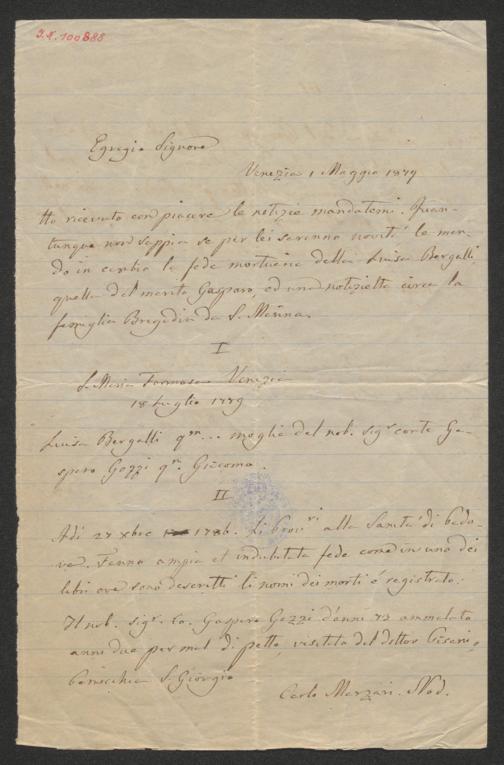 J.N. 100888
Egregio Signore
Venezia 1 Maggio 1879
Ho ricevuto con piacere le notizie mandatemi. Quan-
tunque non sappia se per lei saranno novità le man-
do in cambio la fede mortuaria della Luisa Bergalli
quella del marito Gasparo, ed una notizietta circa la
famiglia Bregadin da S. Marina.
I
S. Maria Formosa Venezia
18 Luglio 1779
Luisa Bergalli qm... moglie del nob. sigr conte Ga-
sparo Gozzi qm Giacomo.
II
Adi 27 xbre 1786. Li Provri alla Sanità di Pado-
va. Fanno ampia et indubitata fede come in uno dei
libri ove sono descritti li nomi dei morti é registrato:
Il nob. sigr Co. Gasparo Gozzi d'anni 73 ammalato
anni due per mal di petto, visitato dal dottor
Parocchia S. Giorgio
Carlo Marzari. Nod.